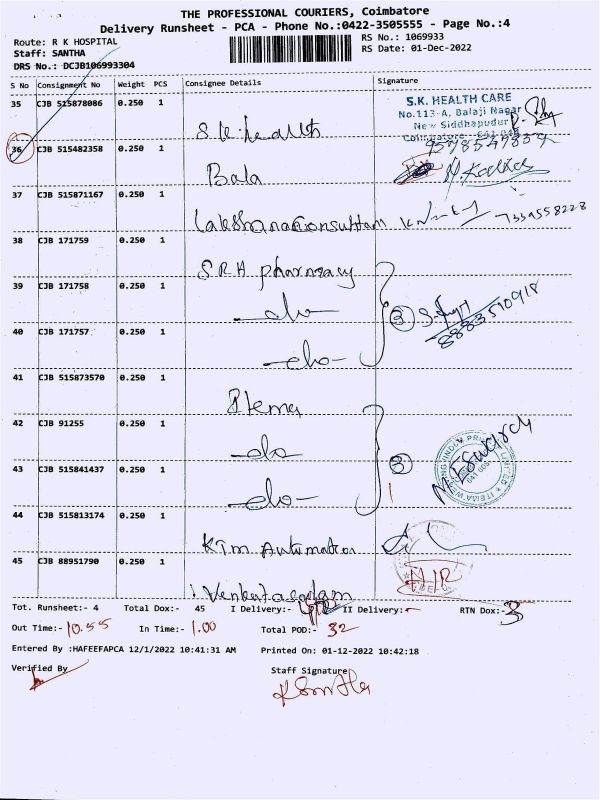 THE PROFESSIONAL COURIERS, Coimbatore
Delivery Runsheet - PCA - Phone No.:0422-3505555 - Page No.:4
Route: R K HOSPITAL
RS No.: 1069933
Staff: SANTHA
RS Date: 01-Dec-2022
DRS No.: DCJB106993304
S No Consignment No Weight PCS Consignee Details Signature
35 CJB 515878086 0.250 1
S.K. HEALTH CARE
No.113-A, Balaji Nagar
New Siddhapudur
Coimbatore - 641 044
S K health
9578547859
36 CJB 515482358 0.250 1
Bala
37 CJB 515871167 0.250 1
Lakshana Consultam 7339558228
38 CJB 171759 0.250 1
S.R.H pharmacy
39 CJB 171758 0.250 1
-do-
3
8883510918
40 CJB 171757 0.250 1
-do-
41 CJB 515873570 0.250 1
Itema
42 CJB 91255 0.250 1
-do-
3
M. Eswaran
43 CJB 515841437 0.250 1
-do-
44 CJB 515813174 0.250 1
KTM Automation
45 CJB 88951790 0.250 1
Venkatachalam
Tot. Runsheet:- 4 Total Dox:- 45 I Delivery:- II Delivery:- RTN Dox:- 3
Out Time:- 10.55 In Time:- 1.00 Total POD:- 32
Entered By :HAFEEFAPCA 12/1/2022 10:41:31 AM Printed On: 01-12-2022 10:42:18
Verified By Staff Signature